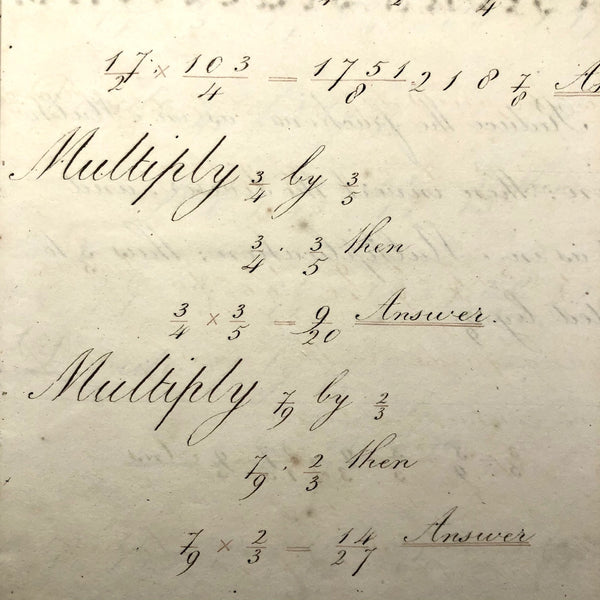 17/2 × 103/4 = 1751/8 218 7/8
Multiply 3/4 by 3/5
3/4 . 3/5 then
3/4 × 3/5 = 9/20 Answer.
Multiply 7/9 by 2/3
7/9 . 2/3 then
7/9 × 2/3 = 14/27 Answer